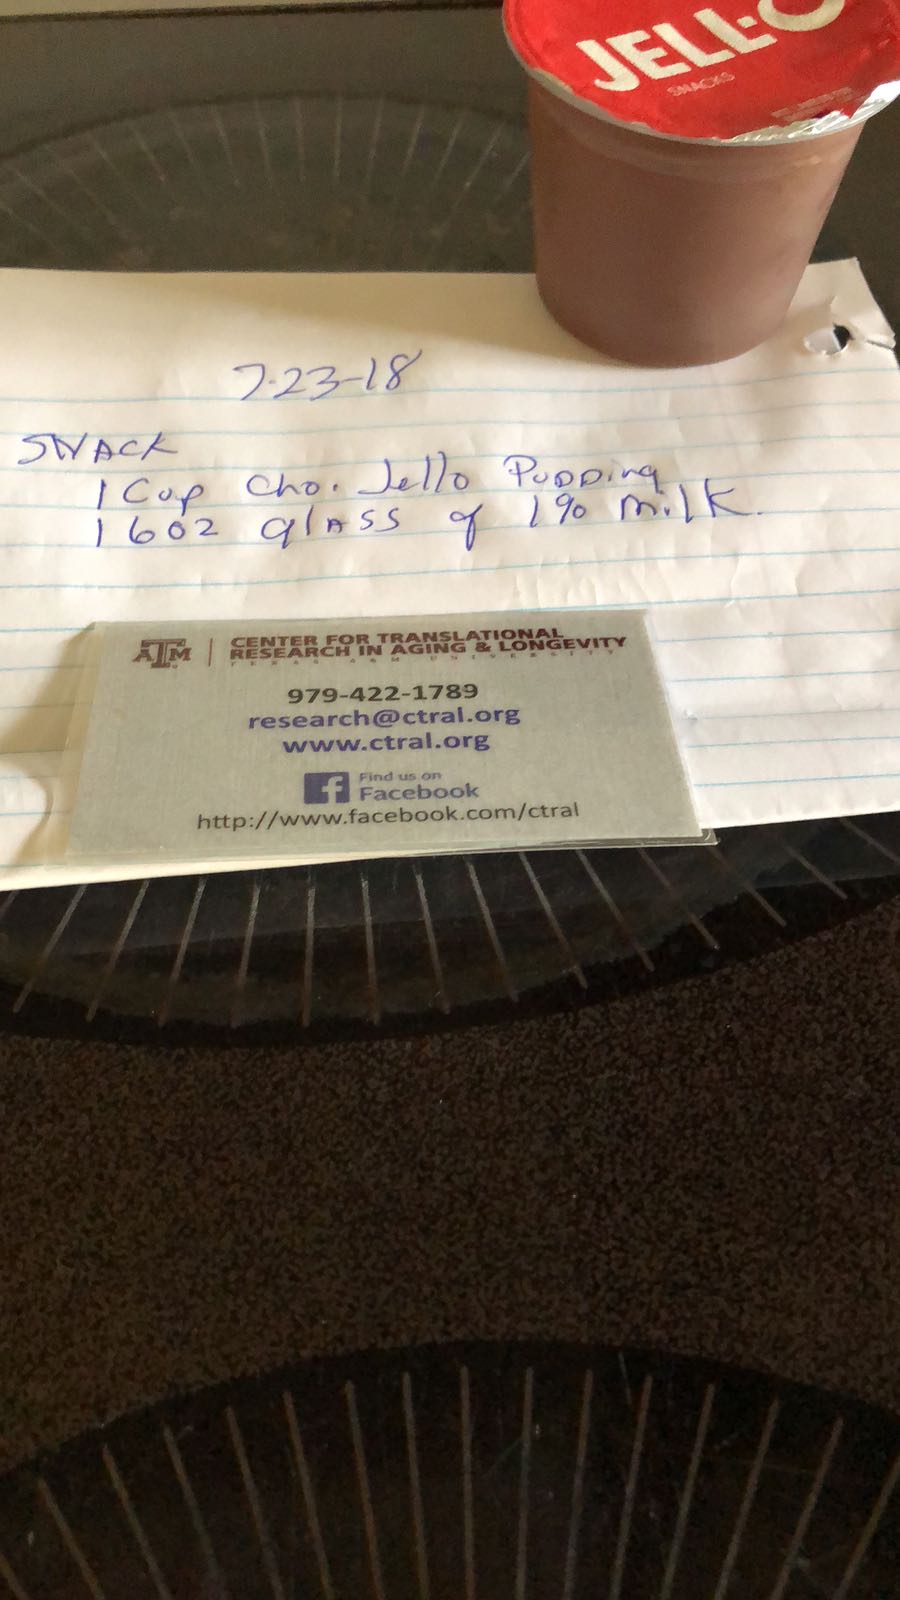 JELL-O
SNACKS
7-23-18
SNACK
1 Cup Cho. Jello Pudding
1 6oz glass of 1% milk.
ATM
CENTER FOR TRANSLATIONAL
RESEARCH IN AGING & LONGEVITY
TEXAS A&M UNIVERSITY
979-422-1789
research@ctral.org
www.ctral.org
f Find us on
Facebook
http://www.facebook.com/ctral